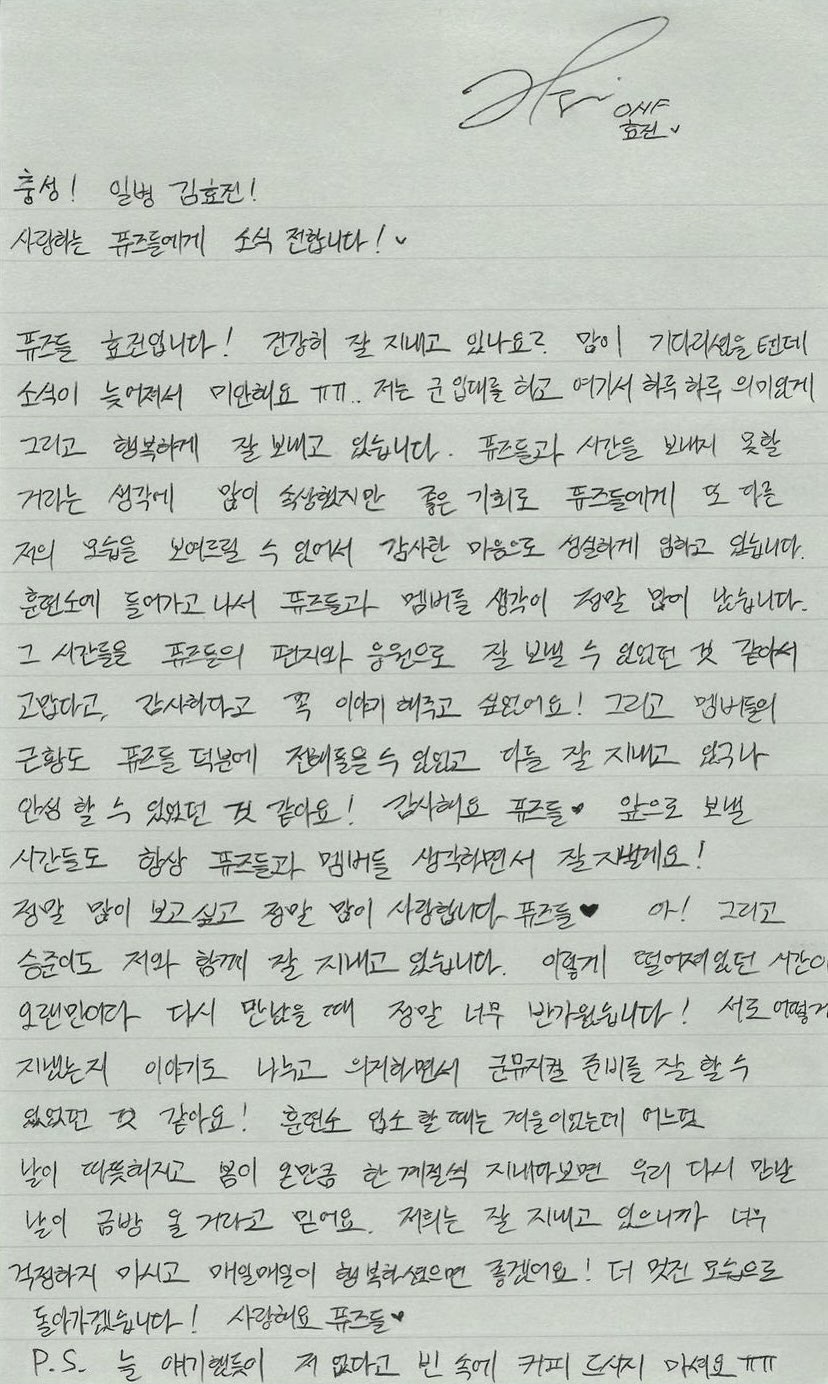 ONF
효진
충성! 일병 김효진!
사랑하는 퓨즈들에게 소식 전합니다!
퓨즈들 효진입니다! 건강히 잘 지내고 있나요? 많이 기다리셨을텐데
소식이 늦어져서 미안해요 ㅠㅠ.. 저는 군 입대를 하고 여기서 하루 하루 의미있게
그리고 행복하게 잘 보내고 있습니다. 퓨즈들과 시간을 보내지 못할
거라는 생각에 많이 속상했지만 좋은 기회로 퓨즈들에게 또 다른
저의 모습을 보여드릴 수 있어서 감사한 마음으로 성실하게 임하고 있습니다.
훈련소에 들어가고 나서 퓨즈들과 멤버들 생각이 정말 많이 났습니다.
그 시간들을 퓨즈들의 편지와 응원으로 잘 보낼 수 있었던 것 같아서
고맙다고, 감사하다고 꼭 이야기 해주고 싶었어요! 그리고 멤버들의
근황도 퓨즈들 덕분에 전해들을 수 있었고 다들 잘 지내고 있구나
안심 할 수 있었던 것 같아요! 감사해요 퓨즈들♥ 앞으로 보낼
시간들도 항상 퓨즈들과 멤버들 생각하면서 잘 지낼게요!
정말 많이 보고싶고 정말 많이 사랑합니다 퓨즈들♥ 아! 그리고
승준이도 저와 함께 잘 지내고 있습니다. 이렇게 떨어져있던 시간이
오랜만이다 다시 만났을 때 정말 너무 반가웠습니다! 서로 어떻게
지냈는지 이야기도 나누고 의지하면서 군뮤지컬 준비를 잘 할 수
있었던 것 같아요! 훈련소 입소 할 때는 겨울이었는데 어느덧
날이 따뜻해지고 봄이 온만큼 한 계절씩 지내다보면 우리 다시 만날
날이 금방 올 거라고 믿어요. 저희는 잘 지내고 있으니까 너무
걱정하지 마시고 매일매일이 행복하셨으면 좋겠어요! 더 멋진 모습으로
돌아가겠습니다! 사랑해요 퓨즈들♥
P.S. 늘 얘기했듯이 저 없다고 빈 속에 커피 드시지 마셔요 ㅠㅠ